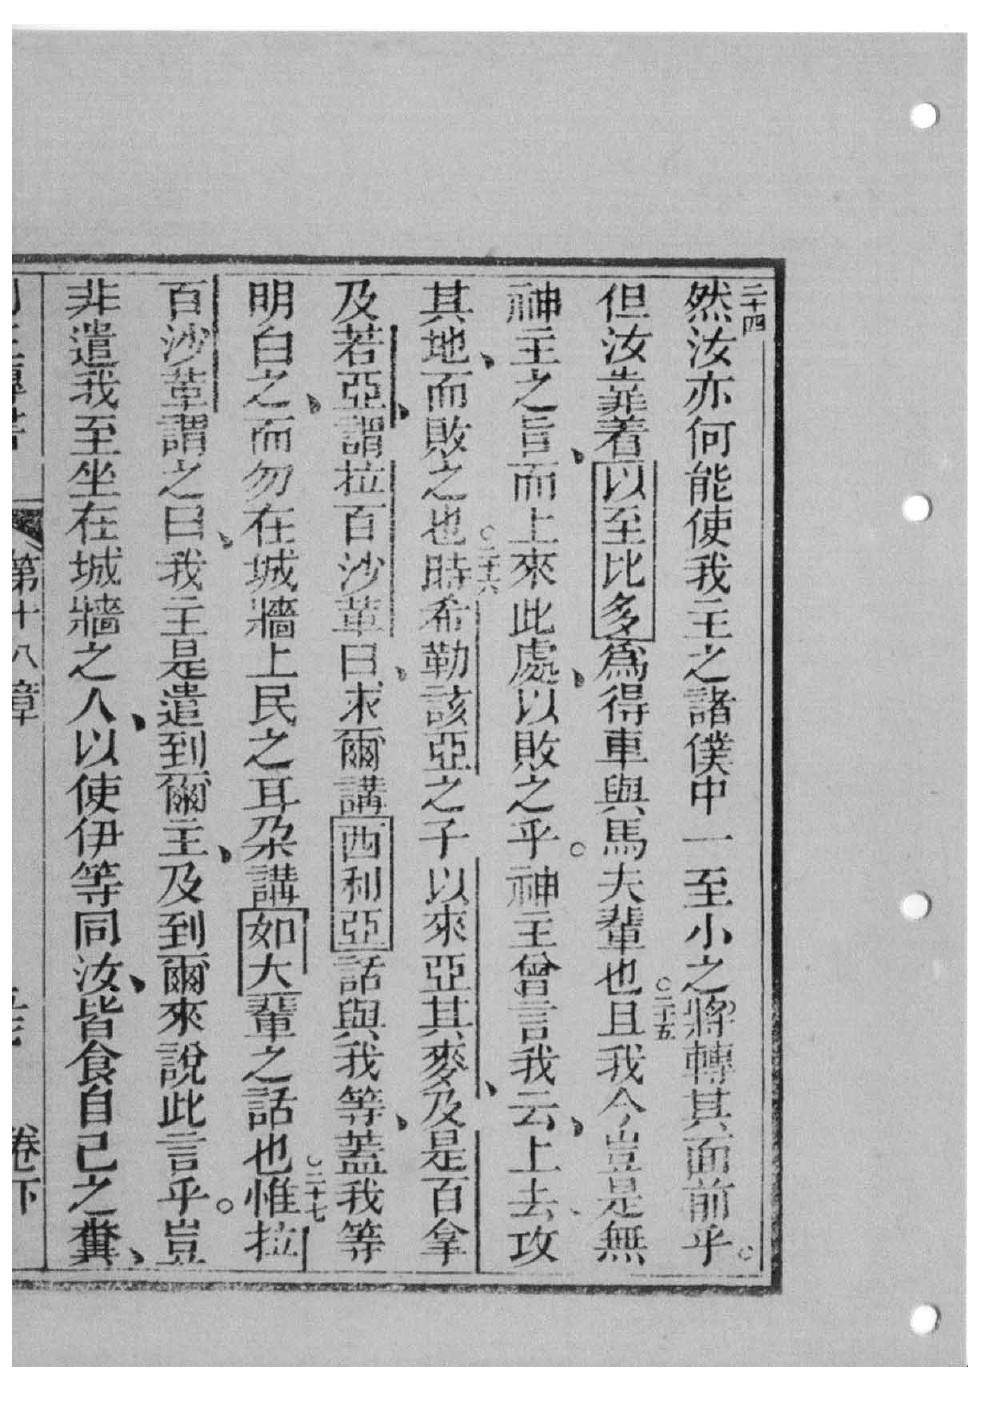 二十四然汝亦何能使我主之諸僕中一至小之將轉其面前乎。
但汝靠着以至比多爲得車與馬夫輩也。二十五且我今豈是無
神主之旨、而上來此處、以敗之乎。神主曾言我云、上去、攻
其地、而敗之也。二十六時希勒該亞之子以來亞其麥、及是百拿
及若亞、謂拉百沙革曰、求爾講西利亞話與我等、蓋我等
明白之、而勿在城牆上民之耳朶講如大輩之話也。二十七惟拉
百沙革謂之曰、我主是遣到爾主、及到爾來說此言乎。豈
非遣我至坐在城牆之人、以使伊等同汝、皆食自己之糞、
第十八章
卷下